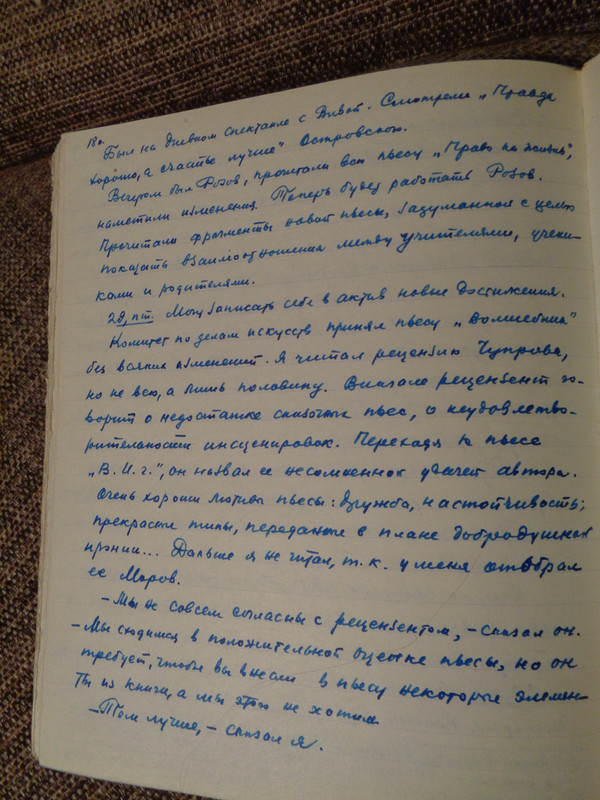 Был на дневном спектакле с Вивой. Смотрели „Правда
хорошо, а счастье лучше" Островского.
Вечером был Розов, прочитали всю пьесу „Право на жизнь",
наметили изменения. Теперь будет работать Розов.
Прочитали фрагменты новой пьесы, задуманной с целью
показать взаимоотношения между учителями, учени-
ками и родителями.
28, пт. Могу записать себе в актив новые достижения.
Комитет по делам искусств принял пьесу „Волшебник"
без всяких изменений. Я читал рецензию Чупрова,
но не всю, а лишь половину. Вначале рецензент го-
ворит о недостатке сказочных пьес, о неудовлетво-
рительности инсценировок. Переходя к пьесе
„В. И. г.", он назвал ее несомненной удачей автора.
Очень хороши мотивы пьесы: дружба, настойчивость;
прекрасные типы, переданные в плане добродушной
иронии... Дальше я не читал, т. к. у меня отобрал
ее Маров.
– Мы не совсем согласны с рецензентом, – сказал он.
– Мы сходимся в положительной оценке пьесы, но он
требует, чтобы вы внесли в пьесу некоторые элемен-
ты из книги, а мы этого не хотим.
– Тем лучше, – сказал я.